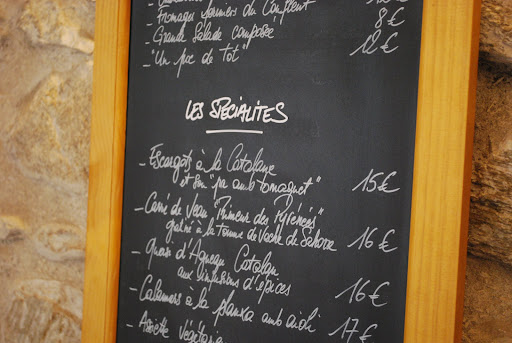 - Fromages fermiers du Conflent 8€
- Grande Salade composée 12€
- "Un poc de Tot"
LES SPECIALITES
- Escargots à la Catalane
et son "pa amb tomaquet" 15€
- Carré de Veau "Rimeur des Pyrénées"
à la tomme de Vache de Sahorre 16€
- d'Agneau Catalan
aux infusions d'épices 16€
- Calamars à la planxa amb aioli 17€
- Assiette Végétarie